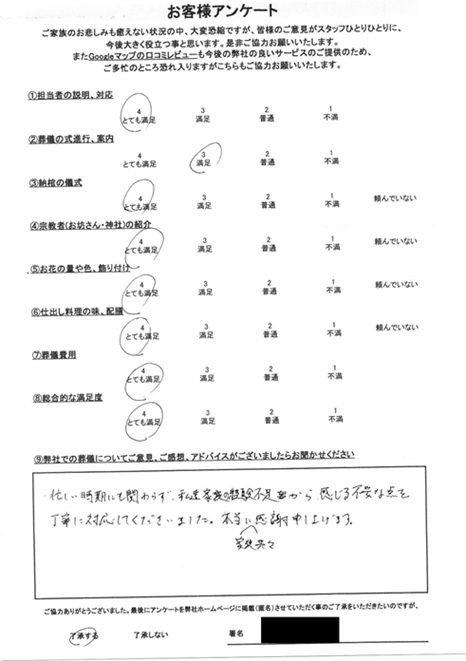 お客様アンケート
ご家族のお悲しみも癒えない状況の中、大変恐縮ですが、皆様のご意見がスタッフひとりひとりに、
今後大きく役立つ事と思います。是非ご協力お願いいたします。
またGoogleマップの口コミレビューも今後の弊社の良いサービスのご提供のため、
ご多忙のところ恐れ入りますがこちらもご協力お願いいたします。
①担当者の説明、対応
4 3 2 1
とても満足 満足 普通 不満
②葬儀の式進行、案内
4 3 2 1
とても満足 満足 普通 不満
③納棺の儀式
4 3 2 1
とても満足 満足 普通 不満 頼んでいない
④宗教者(お坊さん・神社)の紹介
4 3 2 1
とても満足 満足 普通 不満 頼んでいない
⑤お花の量や色、飾り付け
4 3 2 1
とても満足 満足 普通 不満 頼んでいない
⑥仕出し料理の味、配膳
4 3 2 1
とても満足 満足 普通 不満 頼んでいない
⑦葬儀費用
4 3 2 1
とても満足 満足 普通 不満
⑧総合的な満足度
4 3 2 1
とても満足 満足 普通 不満
⑨弊社での葬儀についてご意見、ご感想、アドバイスがございましたらお聞かせください
忙しい時期にも関わらず、私達家族の経験不足から感じる不安な点を
丁寧に対応してくださいました。本当に感謝申し上げます。
家族共々
ご協力ありがとうございました。最後にアンケートを弊社ホームページに掲載(匿名)させていただく事のご了承をいただきたいのですが、
了承する 了承しない 署名